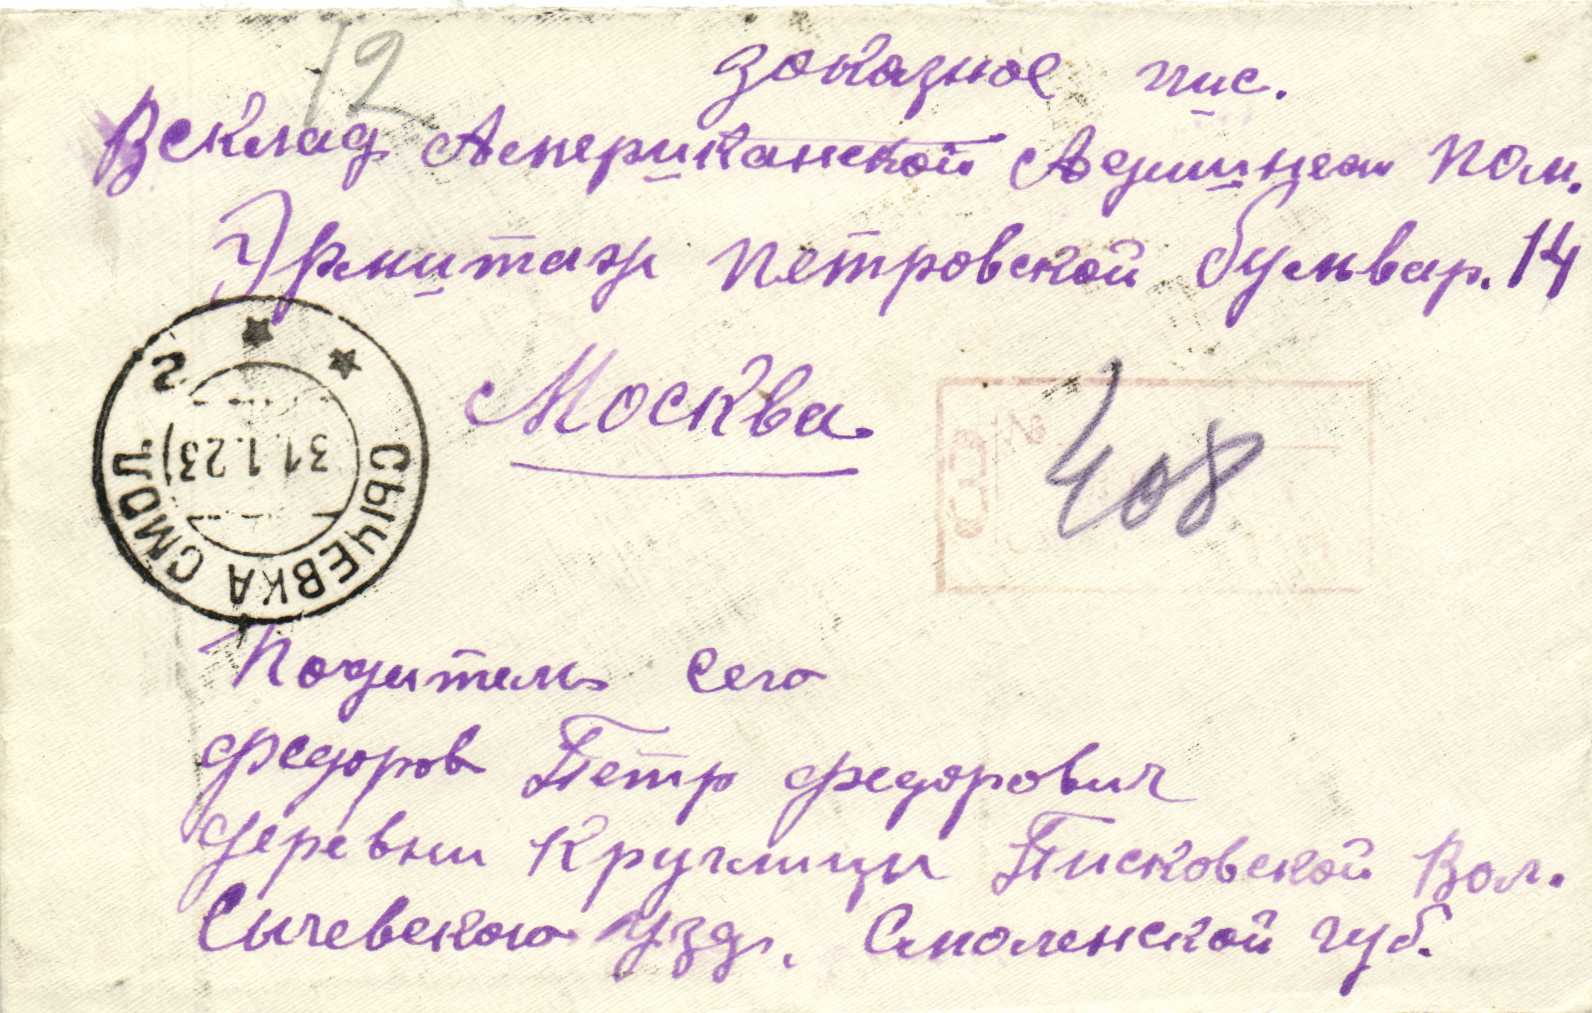 12
заказное пис.
В склад Американской Админест Пом.
Эрмитаж Петровской бульвар. 14
Москва
№
З
408
СЫЧЕВКА СМОЛ.
31.1.23
г
Податель сего
Федоров Петр Федорович
деревни Круглицы Писковской Вол.
Сычевского Узд. Смоленской губ.